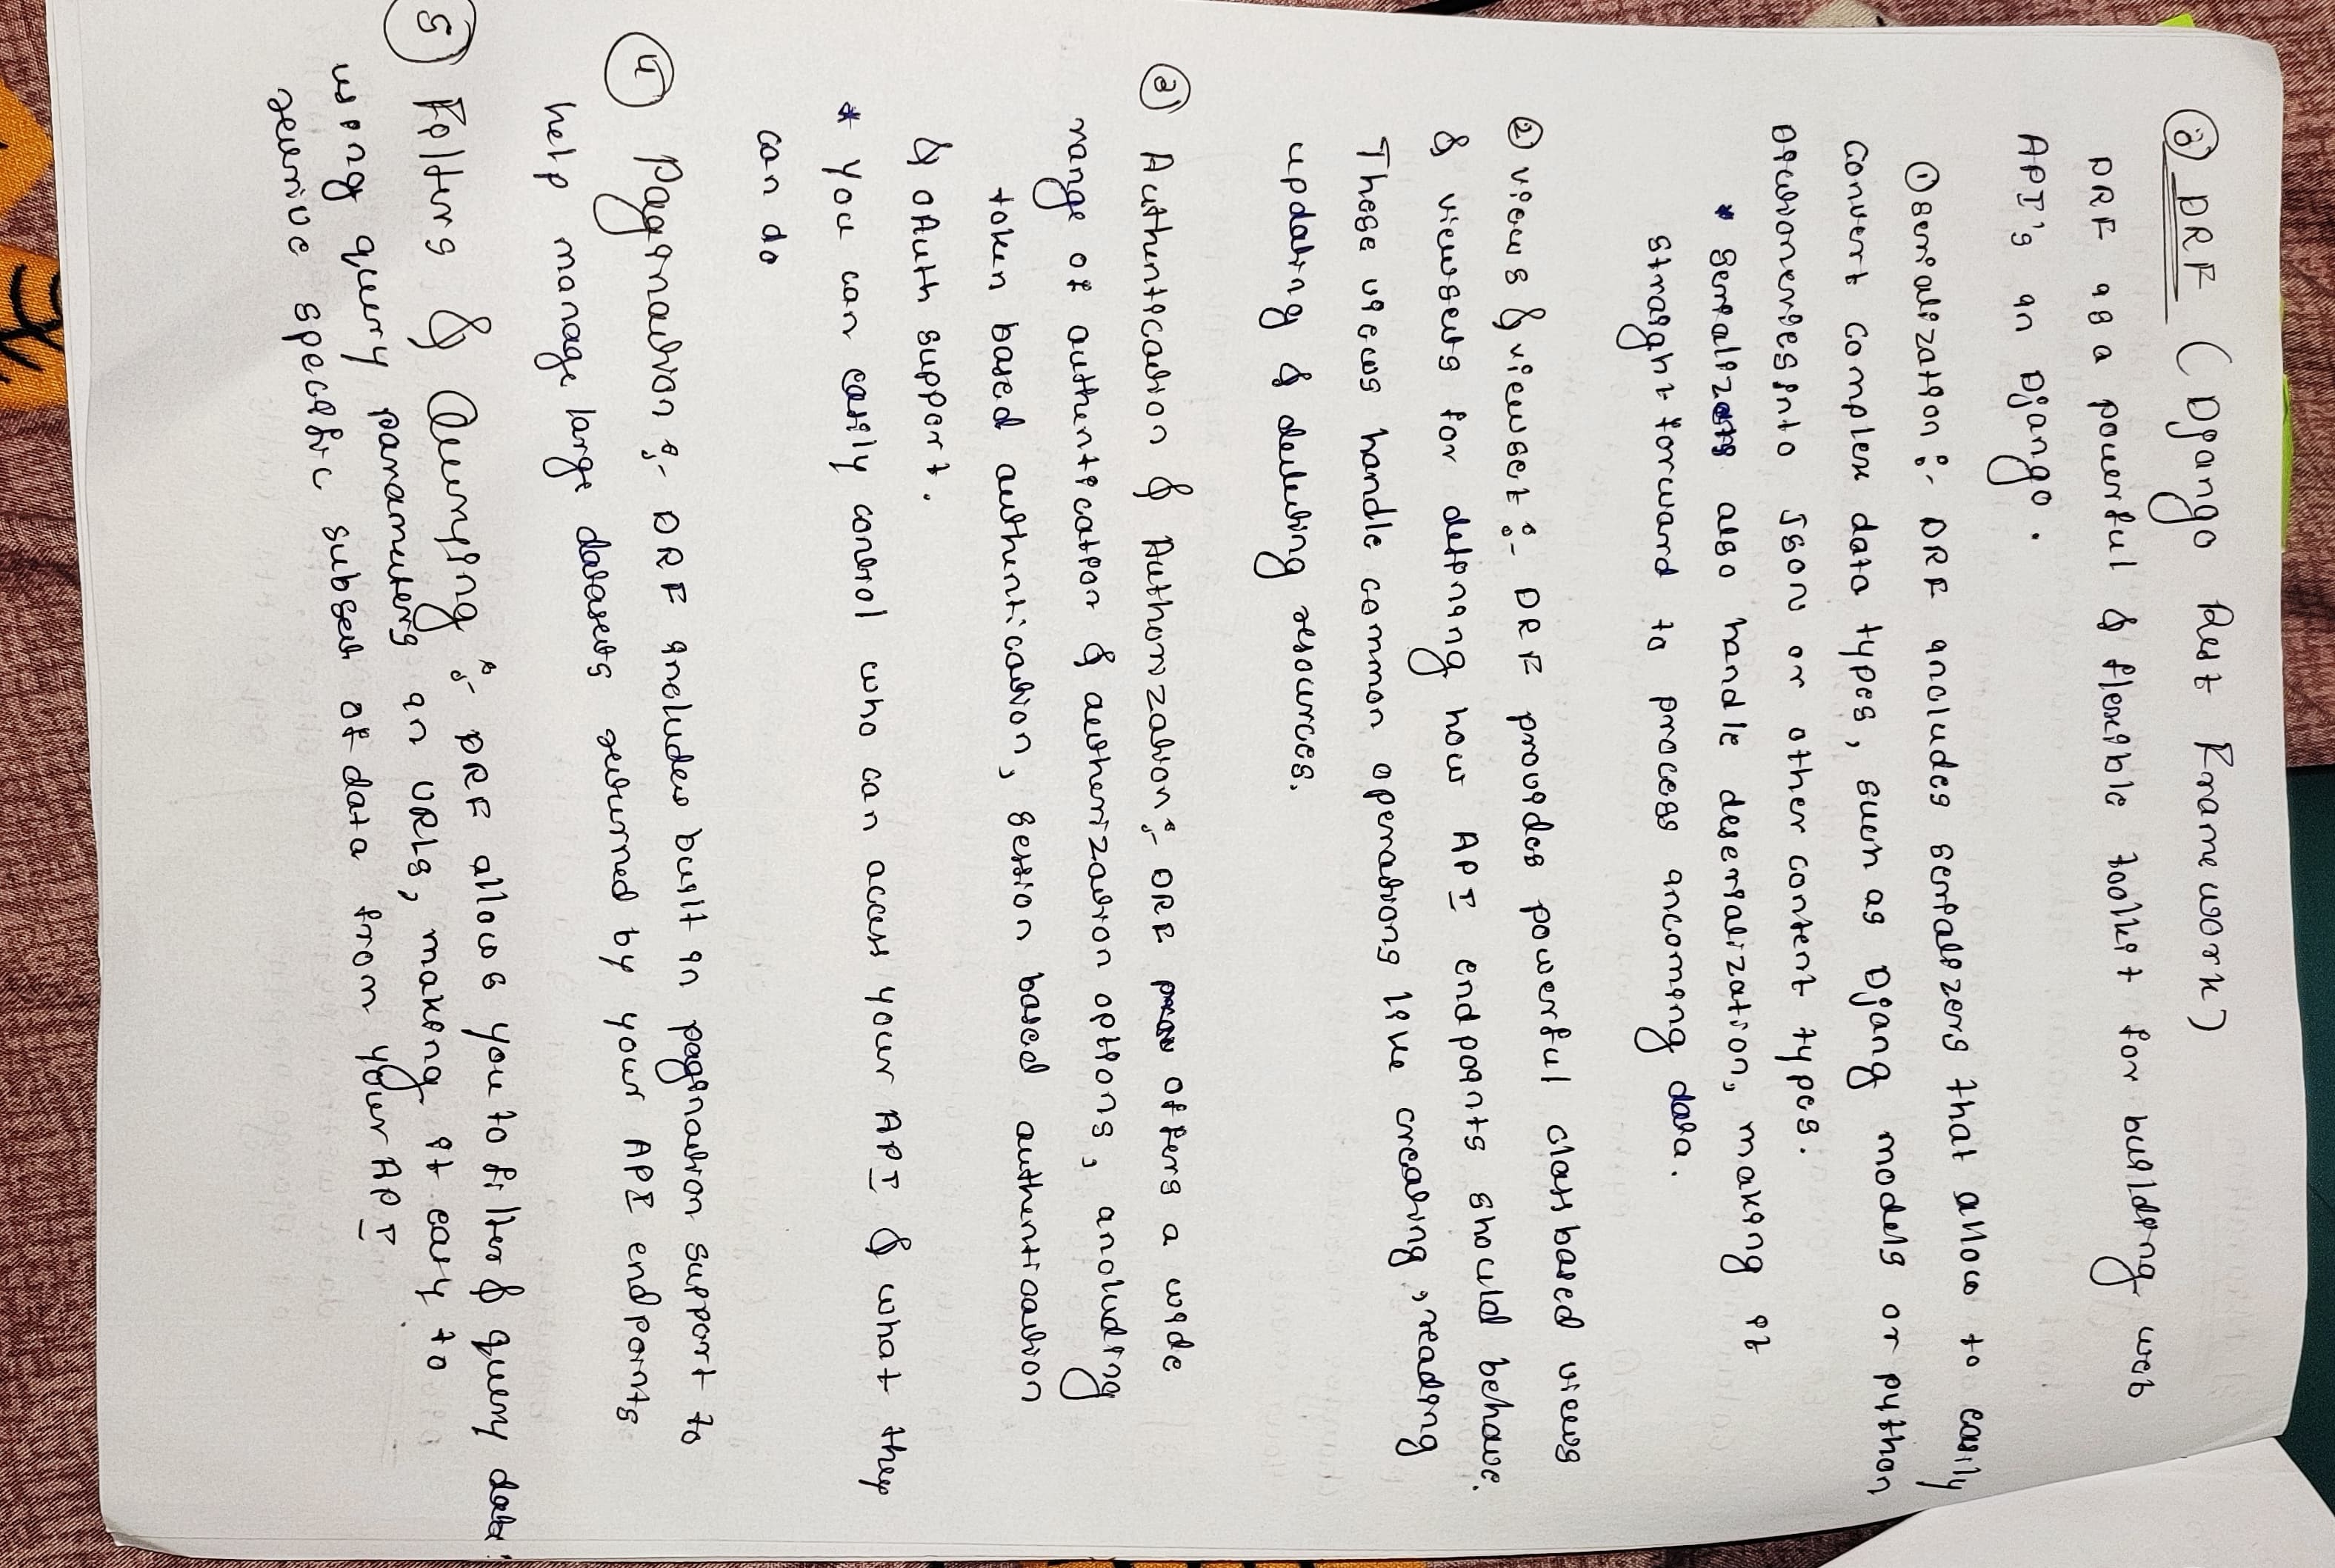 ③ DRF (Django Rest Framework)
DRF is a powerful & flexible toolkit for building web
API's in Django.
① Serialization :- DRF includes serializers that allow to easily
convert complex data types, such as Djang models or python
Dictioneries into JSON or other content types.
* Serializers also handle deserialization, making it
straight forward to process incoming data.
② Views & viewset :- DRF provides powerful class based views
& viewsets for defining how API endpoints should behave.
These views handle common operations like creating, reading
updating & deleting resources.
③ Authentication & Authorization :- DRF offers a wide
range of authentication & autherization options, including
token based authentication, session based authentication
& OAuth support.
* You can easily control who can access your API & what they
can do
④ Pagination :- DRF includes built in pagination support to
help manage large datasets returned by your API endpoints
⑤ Filters & Querying :- DRF allows you to filter & query data
using query parameters in URLs, making it easy to
retrive specific subset of data from your API